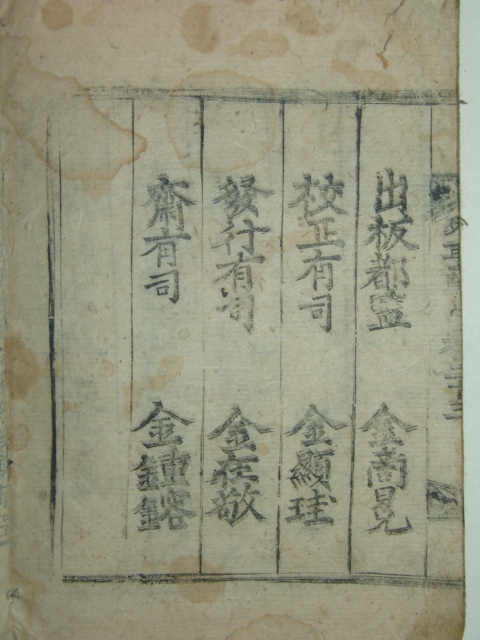 出板都監 金商晃
校正有司 金顯珪
發行有司 金在敬
齋有司 金鍾鎔